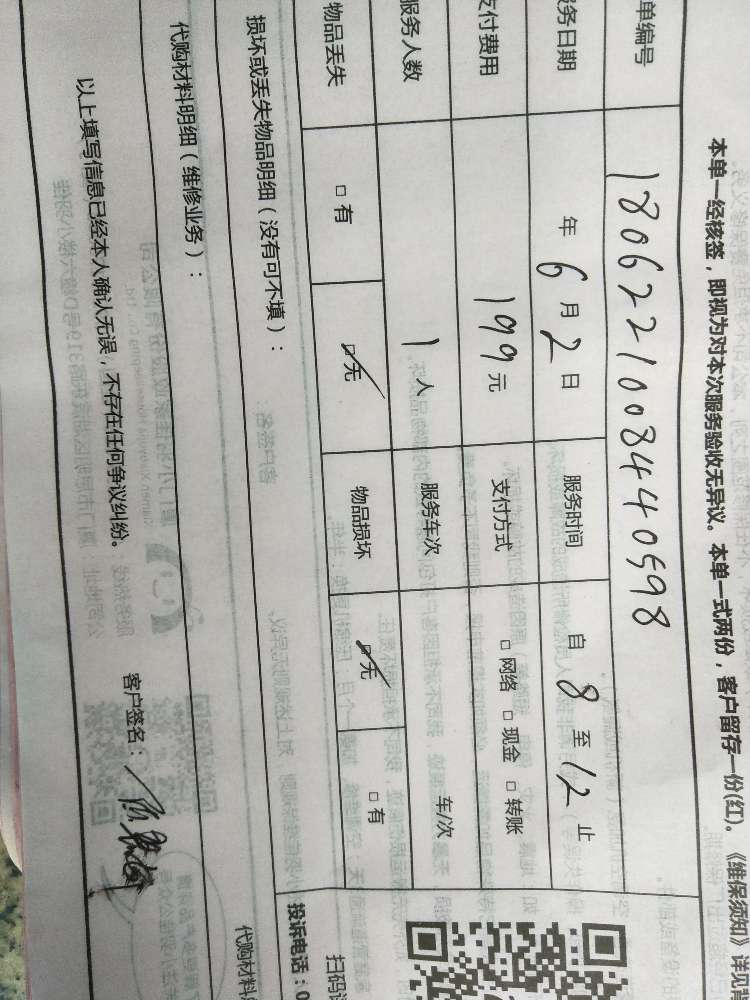 本单一经核签，即视为对本次服务验收无异议。本单一式两份，客户留存一份(红)。《维保须知》详见背
单编号 18062210084440598
服务日期 年 6 月 2 日 服务时间 自 8 至 12 止
支付费用 199 元 支付方式 □ 网络 □ 现金 □ 转账
服务人数 1 人 服务车次 车/次
物品丢失 □ 有 □ 无 物品损坏 □ 无 □ 有
损坏或丢失物品明细（没有可不填）：
代购材料明细（维修业务）：
以上填写信息已经本人确认无误，不存在任何争议纠纷。
客户签名：
扫码
投诉电话：0
代购材料